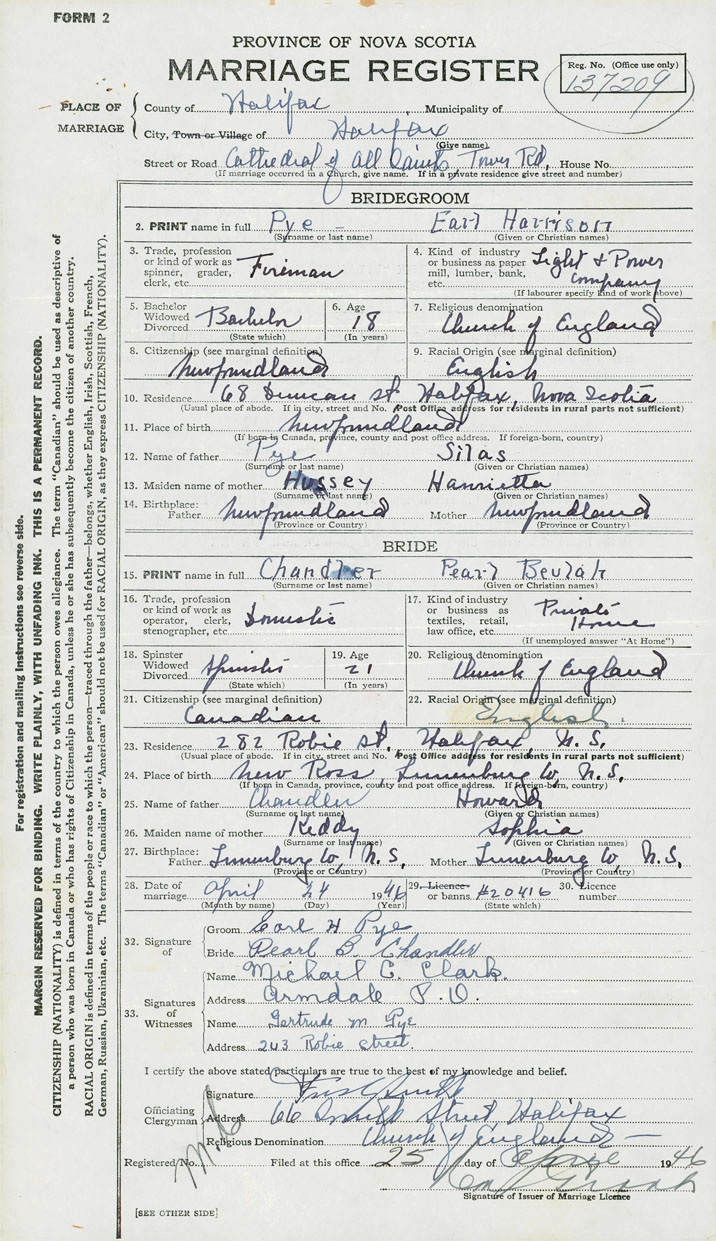 FORM 2
PROVINCE OF NOVA SCOTIA
MARRIAGE REGISTER
Reg. No. (Office use only)
137209
PLACE OF MARRIAGE
County of Halifax Municipality of
City, Town or Village of Halifax
(Give name)
Street or Road Cathedral of All Saints Tower Rd, House No.
(If marriage occurred in a Church, give name. If in a private residence give street and number)
BRIDEGROOM
2. PRINT name in full Pye - Earl Harrison
(Surname or last name) (Given or Christian names)
3. Trade, profession or kind of work as spinner, grader, clerk, etc. Fireman
4. Kind of industry or business as paper mill, lumber, bank, etc. Light & Power Company
(If labourer specify kind of work above)
5. Bachelor Widowed Divorced Bachelor (State which)
6. Age 18 (In years)
7. Religious denomination Church of England
8. Citizenship (see marginal definition) Newfoundland
9. Racial Origin (see marginal definition) English
10. Residence 68 Duncan St Halifax, Nova Scotia
(Usual place of abode. If in city, street and No. Post Office address for residents in rural parts not sufficient)
11. Place of birth Newfoundland
(If born in Canada, province, county and post office address. If foreign-born, country)
12. Name of father Pye Silas
(Surname or last name) (Given or Christian names)
13. Maiden name of mother Hussey Hanrietta
(Surname or last name) (Given or Christian names)
14. Birthplace: Father Newfoundland Mother Newfoundland
(Province or Country) (Province or Country)
BRIDE
15. PRINT name in full Chandler Pearl Beulah
(Surname or last name) (Given or Christian names)
16. Trade, profession or kind of work as operator, clerk, stenographer, etc. Domestic
17. Kind of industry or business as textiles, retail, law office, etc. Private Home
(If unemployed answer "At Home")
18. Spinster Widowed Divorced Spinster (State which)
19. Age 21 (In years)
20. Religious denomination Church of England
21. Citizenship (see marginal definition) Canadian
22. Racial Origin (see marginal definition) English.
23. Residence 282 Robie St, Halifax, N.S.
(Usual place of abode. If in city, street and No. Post Office address for residents in rural parts not sufficient)
24. Place of birth New Ross, Lunenburg Co, N.S.
(If born in Canada, province, county and post office address. If foreign-born, country)
25. Name of father Chandler Howard
(Surname or last name) (Given or Christian names)
26. Maiden name of mother Keddy Sophia
(Surname or last name) (Given or Christian names)
27. Birthplace: Father Lunenburg Co, N.S. Mother Lunenburg Co, N.S.
(Province or Country) (Province or Country)
28. Date of marriage April 24 1946
(Month by name) (Day) (Year)
29. Licence or banns #20416 (State which)
30. Licence number
32. Signature of
Groom Earl H Pye
Bride Pearl B. Chandler
33. Signatures of Witnesses
Name Michael C. Clark.
Address Armdale P.O.
Name Gertrude M Pye
Address 243 Robie Street.
I certify the above stated particulars are true to the best of my knowledge and belief.
Officiating Clergyman
Signature
Address 66 Street Halifax
Religious Denomination Church of England
Registered No. Filed at this office 25 day of 1946
Signature of Issuer of Marriage Licence
[SEE OTHER SIDE]
For registration and mailing instructions see reverse side.
MARGIN RESERVED FOR BINDING. WRITE PLAINLY, WITH UNFADING INK. THIS IS A PERMANENT RECORD.
CITIZENSHIP (NATIONALITY) is defined in terms of the country to which the person owes allegiance. The term "Canadian" should be used as descriptive of
a person who was born in Canada or who has rights of Citizenship in Canada, unless he or she has subsequently become the citizen of another country.
RACIAL ORIGIN is defined in terms of the people or race to which the person—traced through the father—belongs, whether English, Irish, Scottish, French,
German, Russian, Ukrainian, etc. The terms "Canadian" or "American" should not be used for RACIAL ORIGIN, as they express CITIZENSHIP (NATIONALITY).